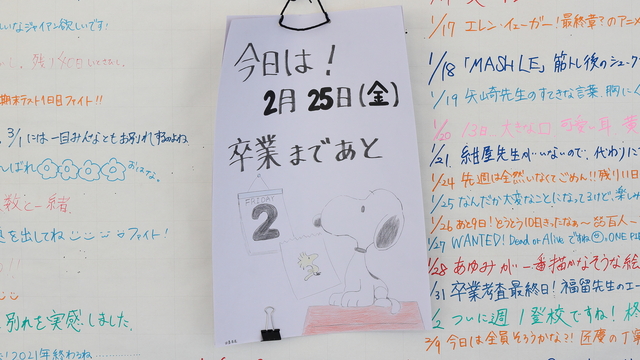 しいなジャイアン欲しいです!
期末テスト1日目ファイト!!
3/1には一回みんなともお別れするのよね
数と一緒
を出してね ファイト!
別れを実感しました。
2021年終わるね
今日は!
2月25日(金)
卒業まであと
FRIDAY
2
1/17 エレン・イェーガー!最終章?のアニメ
1/18「MASHLE」筋トレ後のシュークリ
1/19 矢山崎先生のすてきな言葉、胸に
1/20 13日、大きな口 可愛い耳
1/21 紺屋先生がいないので、代わりに
1/24 先週は全然いなくてごめん!!残り11日
1/25 なんだか大変なことになってるけど、楽しみ
1/26 あと9日!とうとう10日きったなぁ〜
1/27 WANTED! Dead or Alive ですね ONE PI
1/28 あゆみが一番描かなそうな絵
1/31 卒業考査最終日!福留先生のエー
2 ついに週1登校ですね!
2/9 今日は全員そろうかな?!